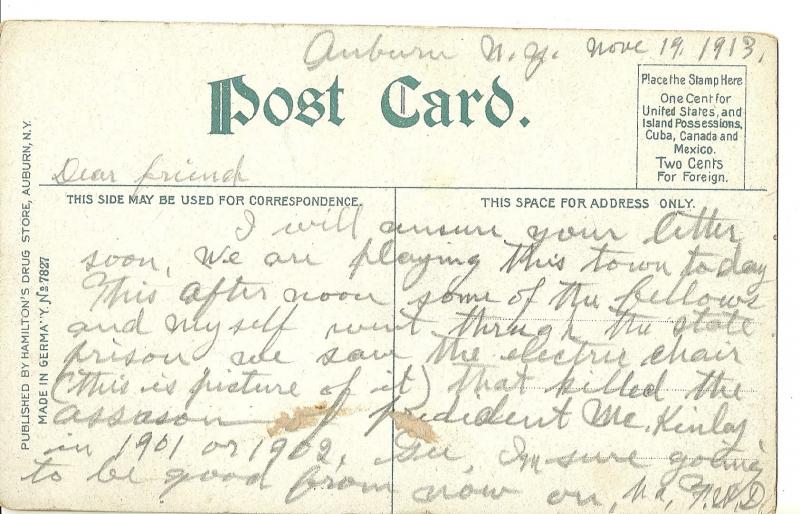 Auburn N.Y. Nove 19, 1913,
Post Card.
Place the Stamp Here
One Cent for
United States, and
Island Possessions,
Cuba, Canada and
Mexico.
Two Cents
For Foreign.
PUBLISHED BY HAMILTON'S DRUG STORE, AUBURN, N.Y.
MADE IN GERMA''Y, No 7827
Dear friend
THIS SIDE MAY BE USED FOR CORRESPONDENCE.
THIS SPACE FOR ADDRESS ONLY.
I will ansure your letter
soon, We are playing this town today
This after noon some of the fellows
and myself went through the state
prison we saw the electric chair
(this is picture of it) that killed the
assason of President Mc.Kinley
in 1901 or 1902, Gee, Im sure going
to be good from now on,